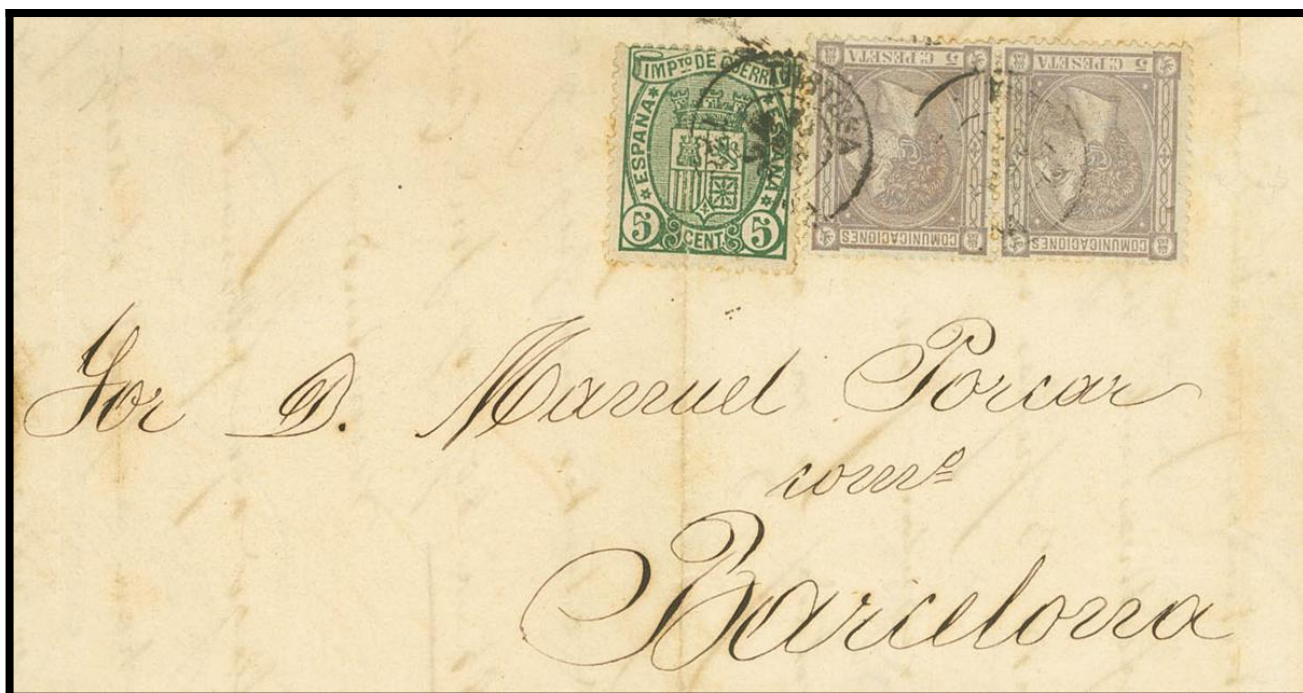 IMPTO DE GUERRA
ESPAÑA
ESPAÑA
5 CENT. 5
5 Cs PESETA
COMUNICACIONES
5 Cs PESETA
COMUNICACIONES
Sor D. Manuel Porcar
como
Barcelona